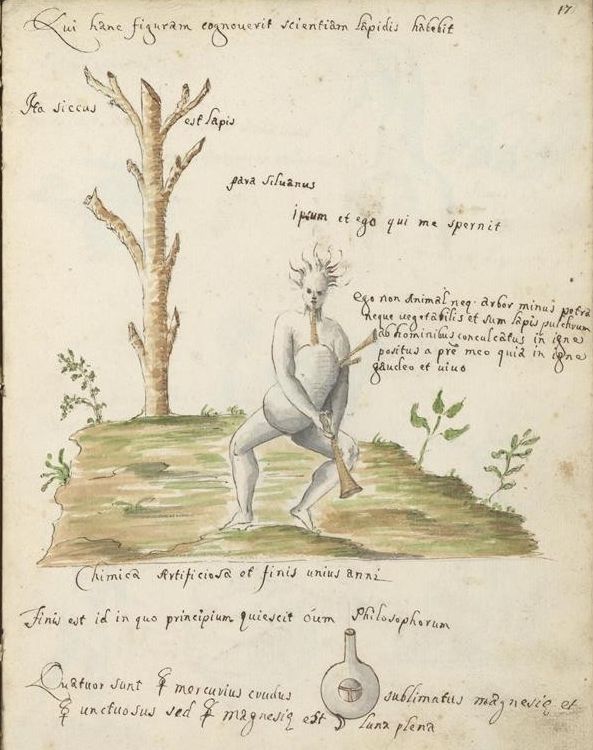 17
Qui hanc figuram cognoverit scientiam lapidis habebit
Ita siccus est lapis
para siluanus
ipsum et ego qui me spernit
Ego non Animal neq. arbor minus petra
neque vegetabilis et sum lapis pulchrum
ab hominibus conculcatus in igne
positus a pre meo quia in igne
gaudeo et vivo
Chimica Artificiosa et finis unius anni
Finis est id in quo principium quiescit oum Philosophorum
Quatuor sunt ☿ mercurius crudus sublimatus magnesię et
☿ unctuosus sed ☿ magnesię est luna plena